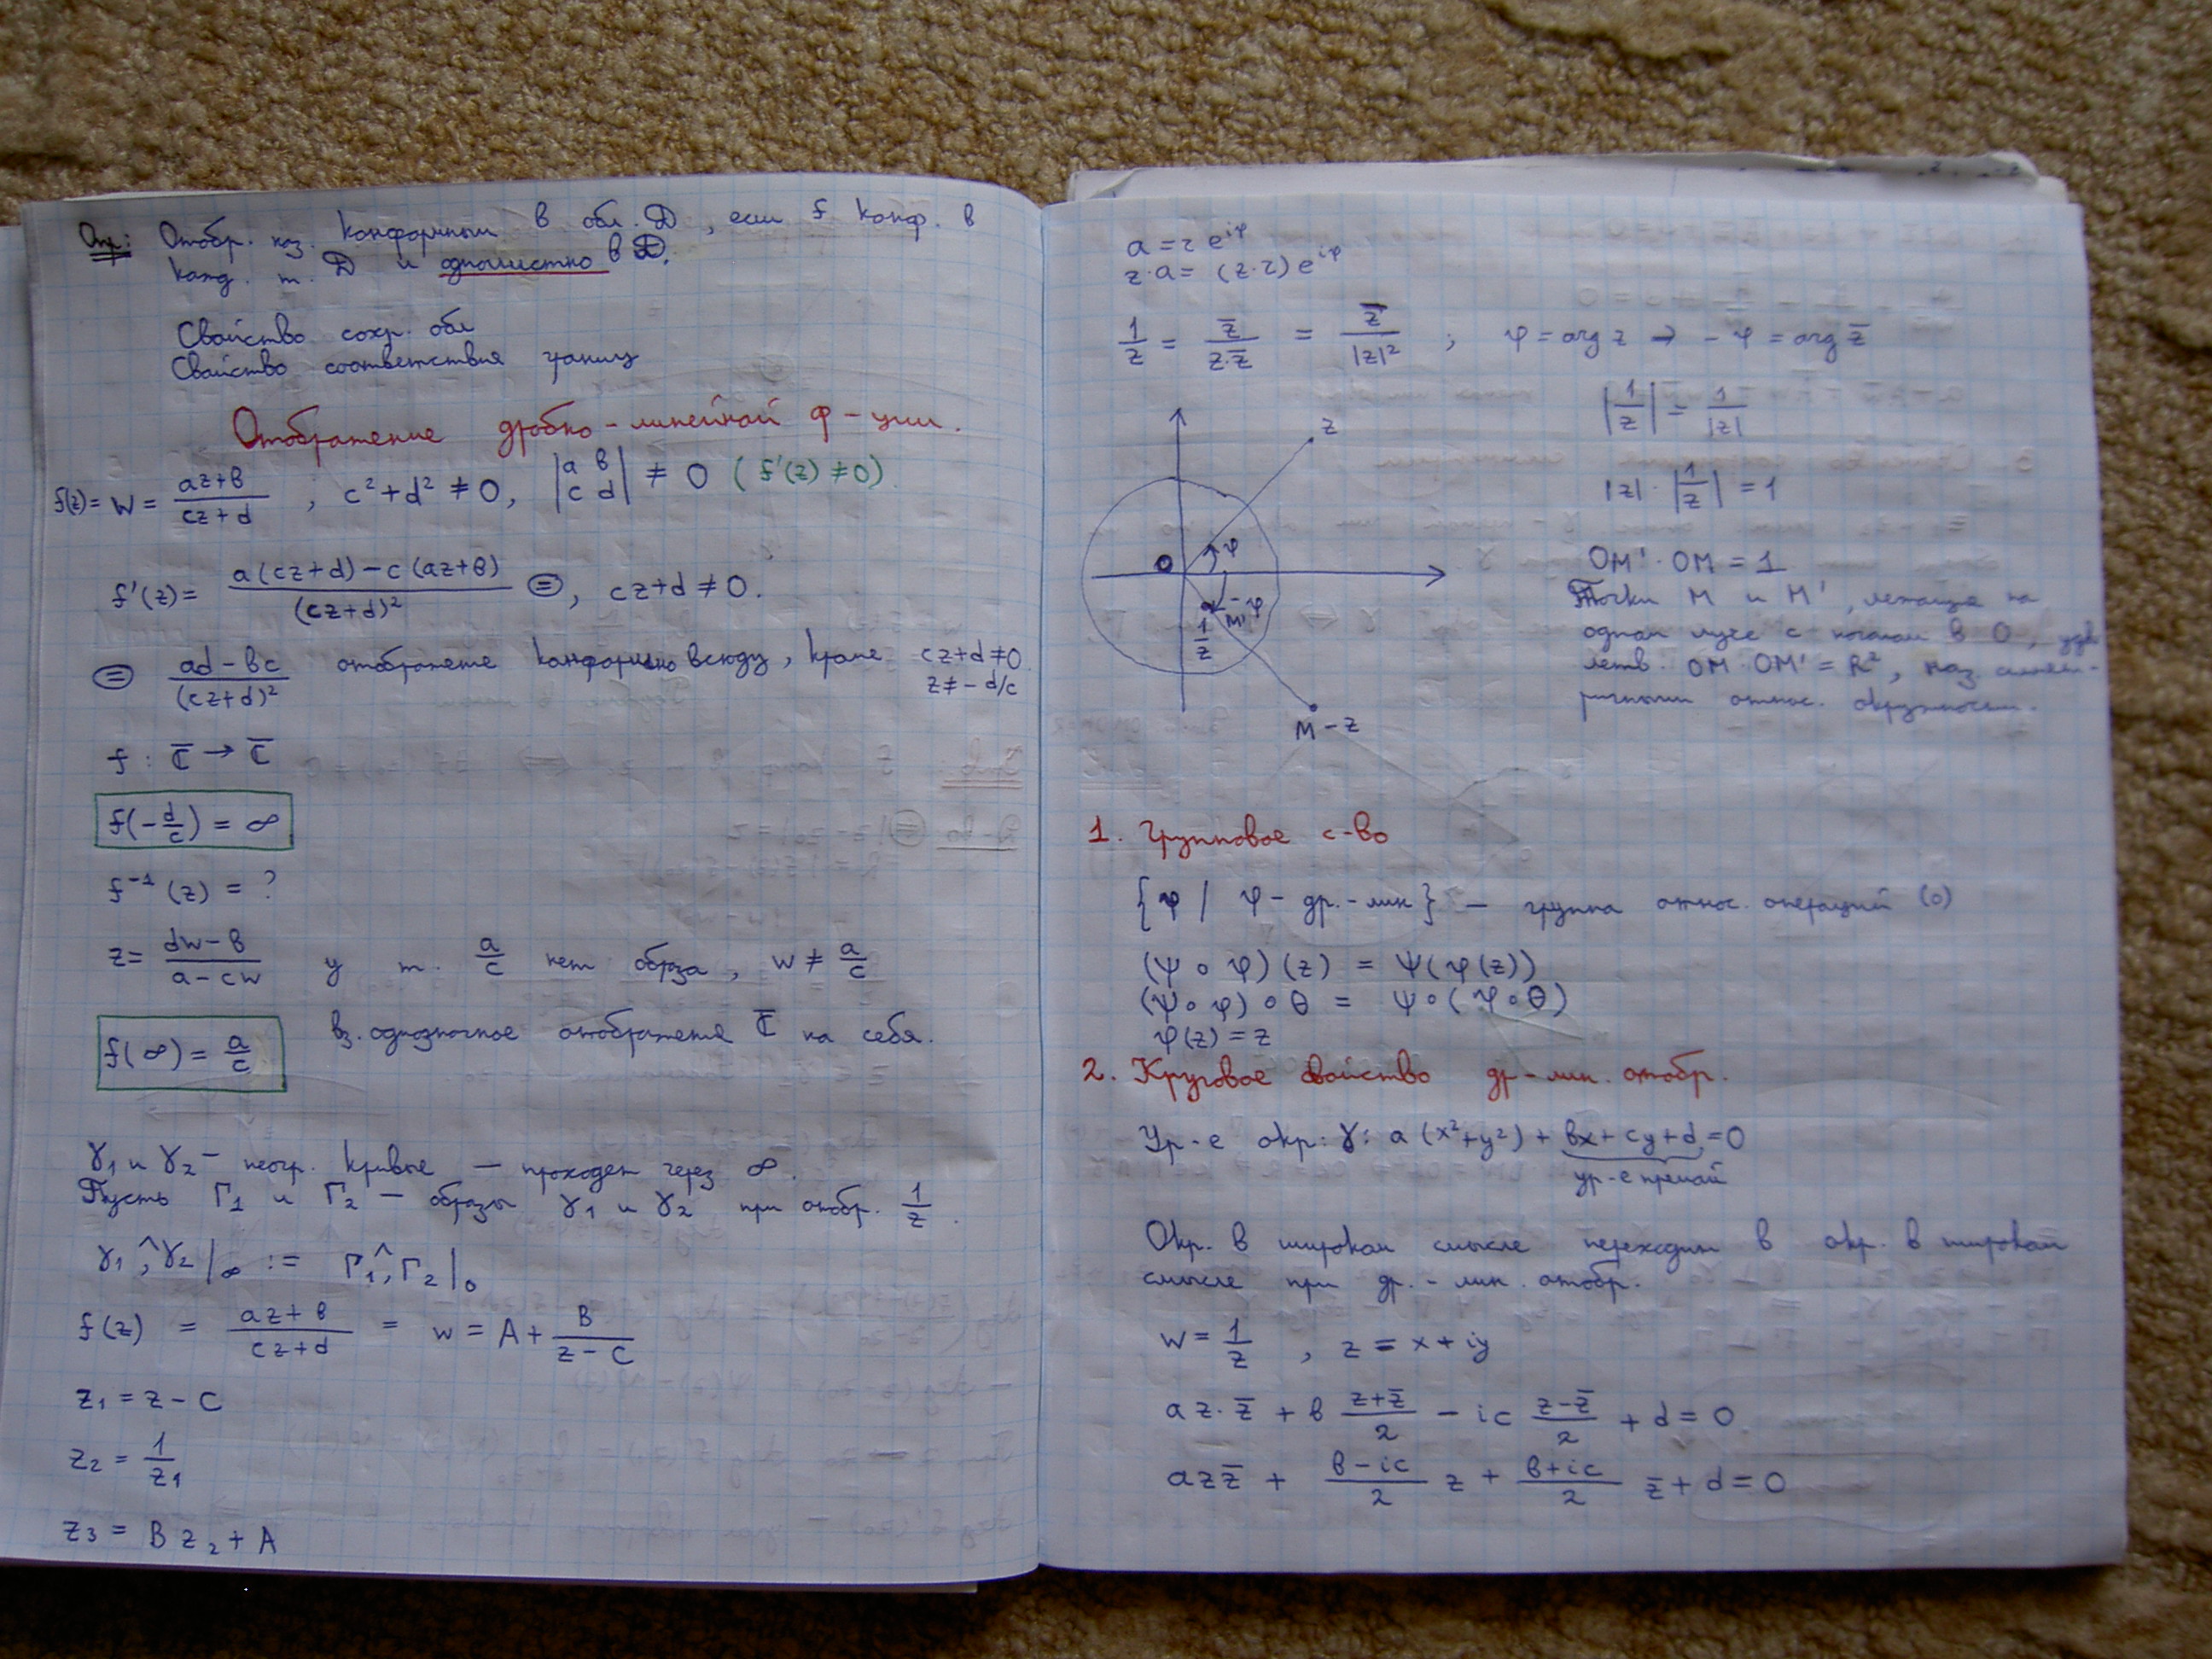 Опр: Отобр. наз. конформным в обл. D, если f конф. в
кажд. т. D и однолистно в D.
Свойство сохр. обл
Свойство соответствия границ
Отображение дробно-линейной ф-ции.
f(z) = w = (az+b)/(cz+d) , c²+d² ≠ 0, |a b; c d| ≠ 0 (f'(z) ≠ 0)
f'(z) = (a(cz+d) − c(az+b))/(cz+d)² ⊜, cz+d ≠ 0.
⊜ (ad−bc)/(cz+d)² отображение конформно всюду, кроме cz+d ≠ 0
z ≠ −d/c
f : C̄ → C̄
f(−d/c) = ∞
f⁻¹(z) = ?
z = (dw−b)/(a−cw) у т. a/c нет образа, w ≠ a/c
f(∞) = a/c вз. однозначное отображение C̄ на себя.
γ1 и γ2 – неогр. кривые — проходят через ∞.
Пусть Γ1 и Γ2 — образы γ1 и γ2 при отобр. 1/z.
γ1,^γ2|∞ := Γ1,^Γ2|0
f(z) = (az+b)/(cz+d) = w = A + B/(z−C)
z1 = z − C
z2 = 1/z1
z3 = B z2 + A
a = r e^{iφ}
z·a = (z·r) e^{iφ}
1/z = z̄/(z·z̄) = z̄/|z|² ; φ = arg z → −φ = arg z̄
|1/z| = 1/|z|
|z|·|1/z| = 1
z
O
φ
−φ
M'
1/z
M − z
OM'·OM = 1
Точки M и M', лежащие на
одном луче с началом в O, удов
летв. OM·OM' = R², наз. симмет-
ричными относ. окружности.
1. Групповое с-во
{φ | φ – др.-лин} — группа относ. операций (∘)
(ψ∘φ)(z) = ψ(φ(z))
(ψ∘φ)∘θ = ψ∘(φ∘θ)
φ(z) = z
2. Круговое свойство др-лин. отобр.
Ур-е окр: γ: a(x²+y²) + bx+cy+d = 0
ур-е прямой
Окр. в широком смысле переходит в окр. в широком
смысле при др.-лин. отобр.
w = 1/z , z = x+iy
az·z̄ + b (z+z̄)/2 − ic (z−z̄)/2 + d = 0
azz̄ + (b−ic)/2 z + (b+ic)/2 z̄ + d = 0